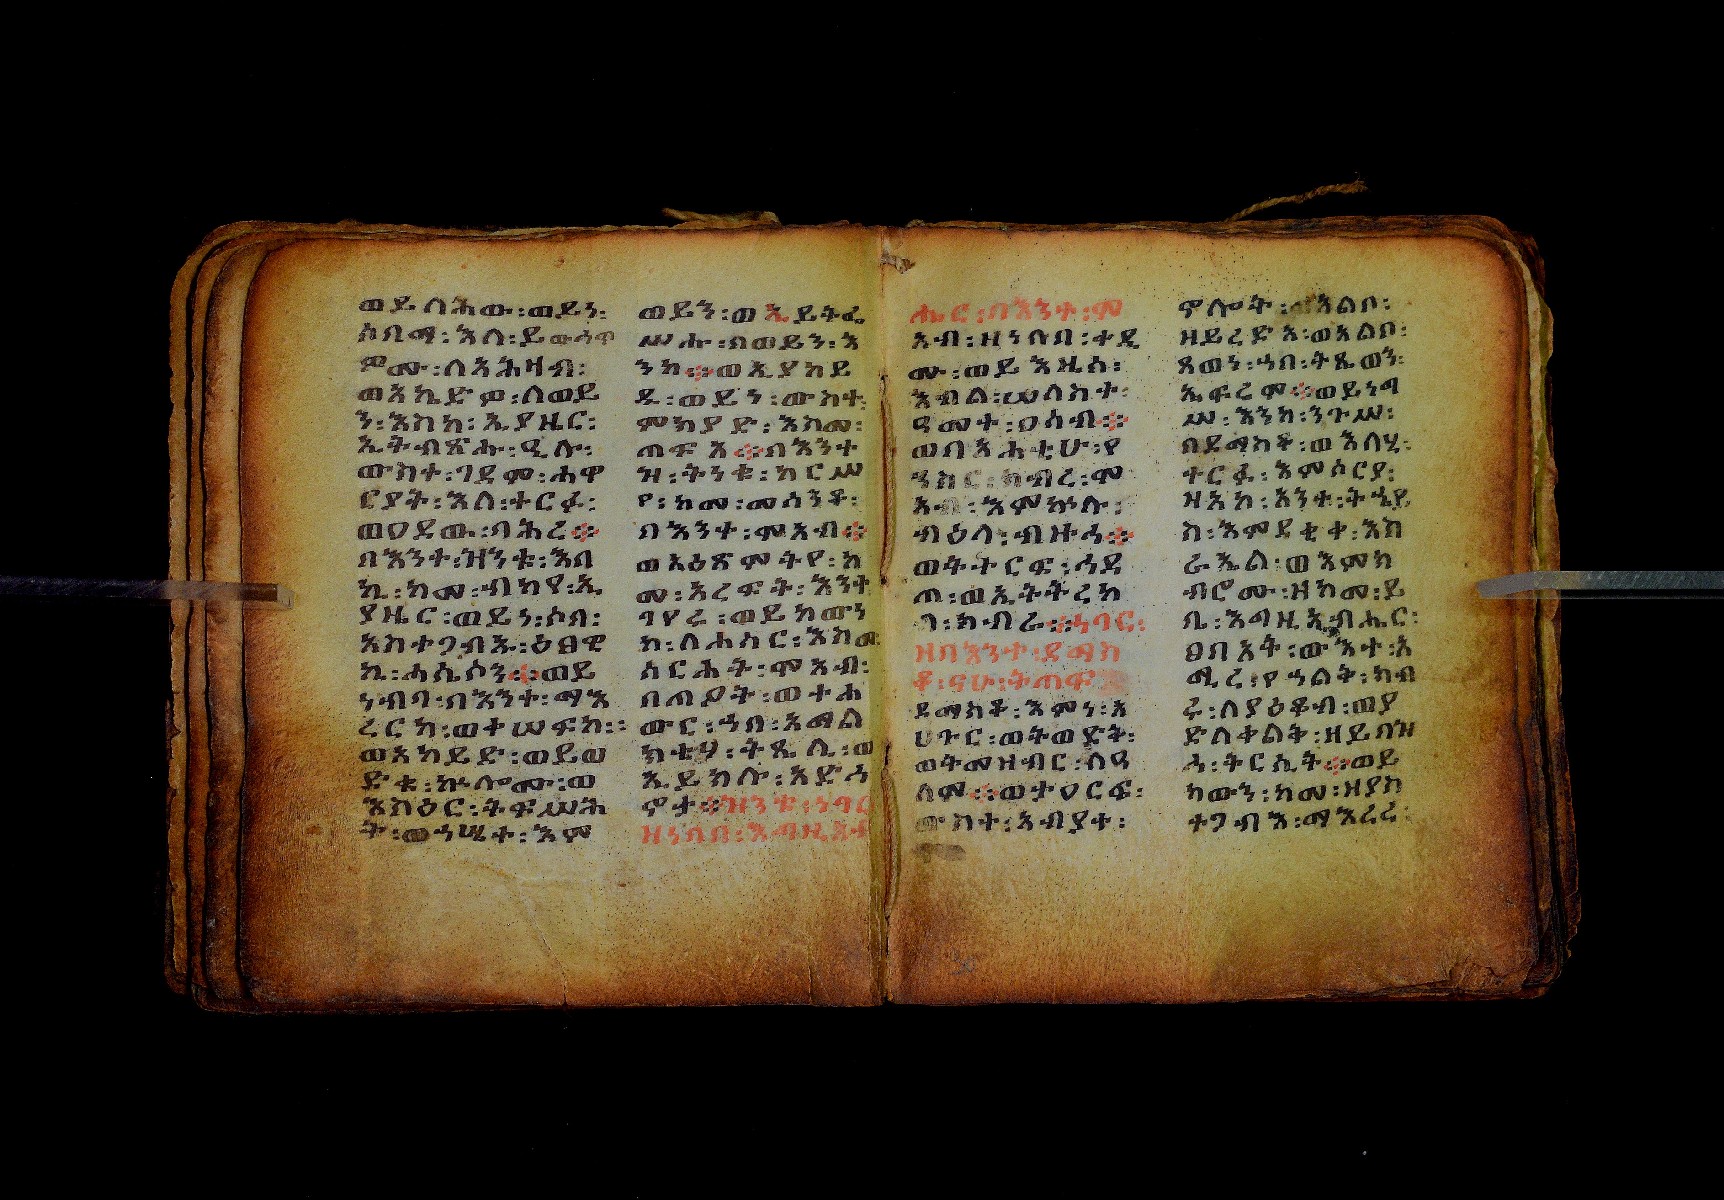 ወይለሕው፡ወይነ፡
ሰበማ፡እለ፡
ምሙ፡ለአሕዛብ፡
ወአኪድም፡ለወይ
ን፡እስከ፡ኢያዜር፡
ኢትብጽሑ፡ዒሉ፡
ውስተ፡ገዳም፡ሐዋ
ርያት፡እለ፡ተርፉ፡
ወዐደዉ፡ባሕረ።
በእንተ፡ዝንቱ፡እበ
ኪ፡ከመ፡ብካየ፡ኢ
ያዜር፡ወይነ፡ሶበ፡
አስተጋብኡ፡ዕፀዊ
ኪ፡ሐሴሶን።ወይ
ነብባ፡በእንተ፡ማእ
ረርኪ፡ወተሠፍኪ፡
ወአከይድ፡ወይወ
ድቁ፡ኵሎሙ፡ወ
እስዕር፡ትፍሥሕ
ት፡ወኀሤተ፡እም
ወይን፡ወኢይትፌ
ሥሑ፡በወይን፡እ
ንከ።ወኢያከይ
ዱ፡ወይን፡ውስተ፡
ምክያድ፡እስመ፡
ጠፍአ።በእንተ
ዝ፡ትንቱ፡ከርሥ
የ፡ከመ፡መሰንቆ፡
በእንተ፡ሞአብ።
ወአዕጽምትየ፡ከ
መ፡አረፍት፡እንተ
ገየሩ፡ወይከውን
ከ፡ለሐስር፡እስመ
ስርሐት፡ሞአብ፡
በጠዖት፡ወተሐ
ውር፡ኀበ፡አማል
ክቲሃ፡ትጼሊ፡ወ
ኢይክሉ፡አድኅ
ኖታ።ዝንቱ፡ነገር
ዘነበበ፡እግዚአብ
ሔር፡በእንተ፡ሞ
አብ፡ዘነበበ፡ተዲ
ሙ፡ወይእዜሰ፡
እብል፡ሠለስተ፡
ዓመተ፡ዐሳብ።
ወበአሐቲሁ፡የ
ኀስር፡ክብረ፡ሞ
አብ፡እምኵሉ፡
ብዕለ፡ብዙኅ።
ወትተርፍ፡ኅዳ
ጠ፡ወኢትትረከ
ብ፡ክብራ።ነገር፡
ዘበእንተ፡ደማስ
ቆ፡ናሁ፡ትጠፍእ
ደማስቆ፡እምነ፡አ
ህጉር፡ወትወድቅ፡
ወትመዘብር፡ለዓ
ለም።ወታዐርፍ፡
ውስተ፡አብያተ፡
ኖሎት፡ወአልቦ፡
ዘይረድአ፡ወአልቦ፡
ጸወን፡ኀበ፡ትጼወን፡
ኤፍሬም።ወይነግ
ሥ፡እንከ፡ንጉሥ፡
በደማስቆ፡ወእለሂ፡
ተርፉ፡እምሶርያ፡
ዘአኮ፡አንተ፡ትኄይ
ስ፡እምደቂቀ፡እስ
ራኤል፡ወእምክ
ብሮሙ፡ዘከመ፡ይ
ቤ፡እግዚአብሔር፡
ፀባኦት፡ውእተ፡አ
ሚረ፡የኀልቅ፡ክብ
ሩ፡ለያዕቆብ፡ወያ
ድለቀልቅ፡ዘይበዝ
ኅ፡ትርሲት።ወይ
ከውን፡ከመ፡ዘያስ
ተጋብእ፡ማእረረ፡